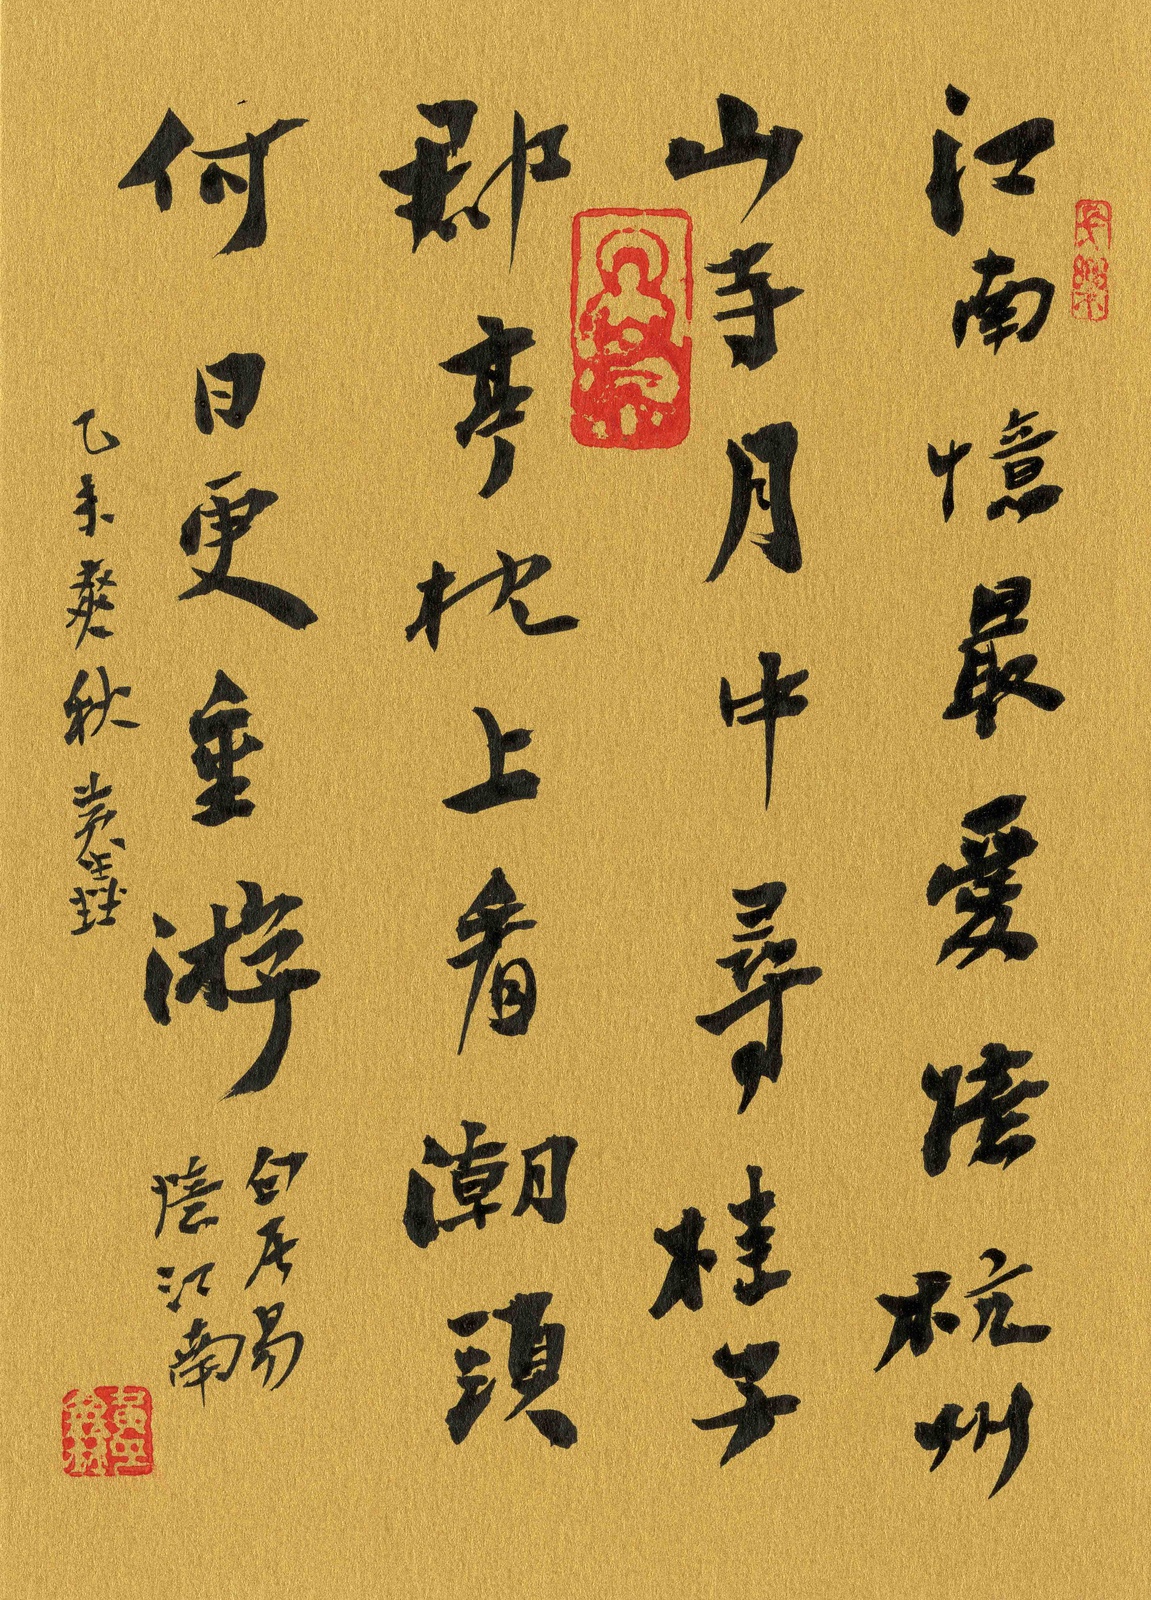 安樂
江南憶最愛憶杭州
山寺月中尋桂子
郡亭枕上看潮頭
何日更重游
白居易
憶江南
乙未爽秋